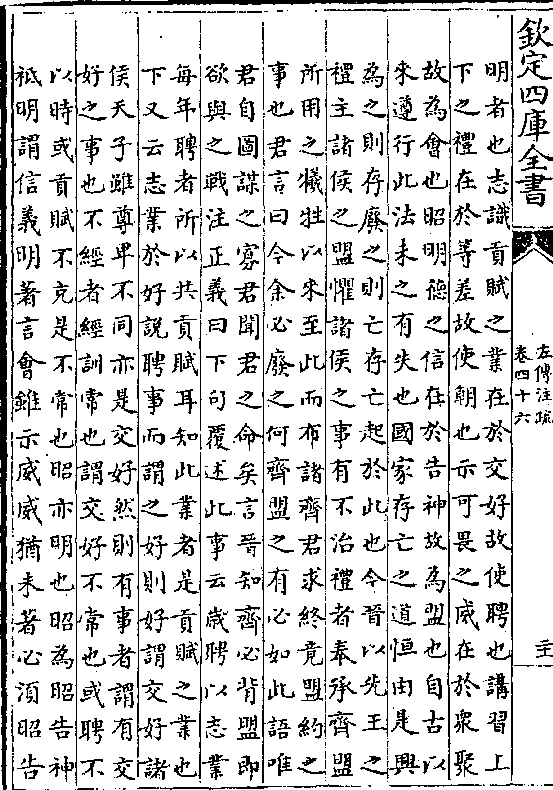 欽定四庫全書
左傳注疏
卷四十六
明者也志識貢賦之業在於交好故使聘也講習上
下之禮在於等差故使朝也示可畏之威在於眾聚
故為會也昭明德之信在於告神故為盟也自古以
來遵行此法未之有失也國家存亡之道恒由是興
為之則存廢之則亡存亡起於此也今晉以先王之
禮主諸侯之盟懼諸侯之事有不治禮者奉承齊盟
所用之犧牲以來至此而布諸齊君求終竟盟約之
事也君言曰今余必廢之何齊盟之有必如此語唯
君自圖謀之寡君聞君之命矣言晉知齊必背盟即
欲與之戰注正義曰下句覆述此事云歲聘以志業
每年聘者所以共貢賦耳知此業者是貢賦之業也
下又云志業於好說聘事而謂之好則好謂交好諸
侯天子雖尊卑不同亦是交好然則有事者謂有交
好之事也不經者經訓常也謂交好不常也或聘不
以時或貢賦不充是不常也昭亦明也昭為昭告神
祗明謂信義明著言會雖示威威猶未著必須昭告